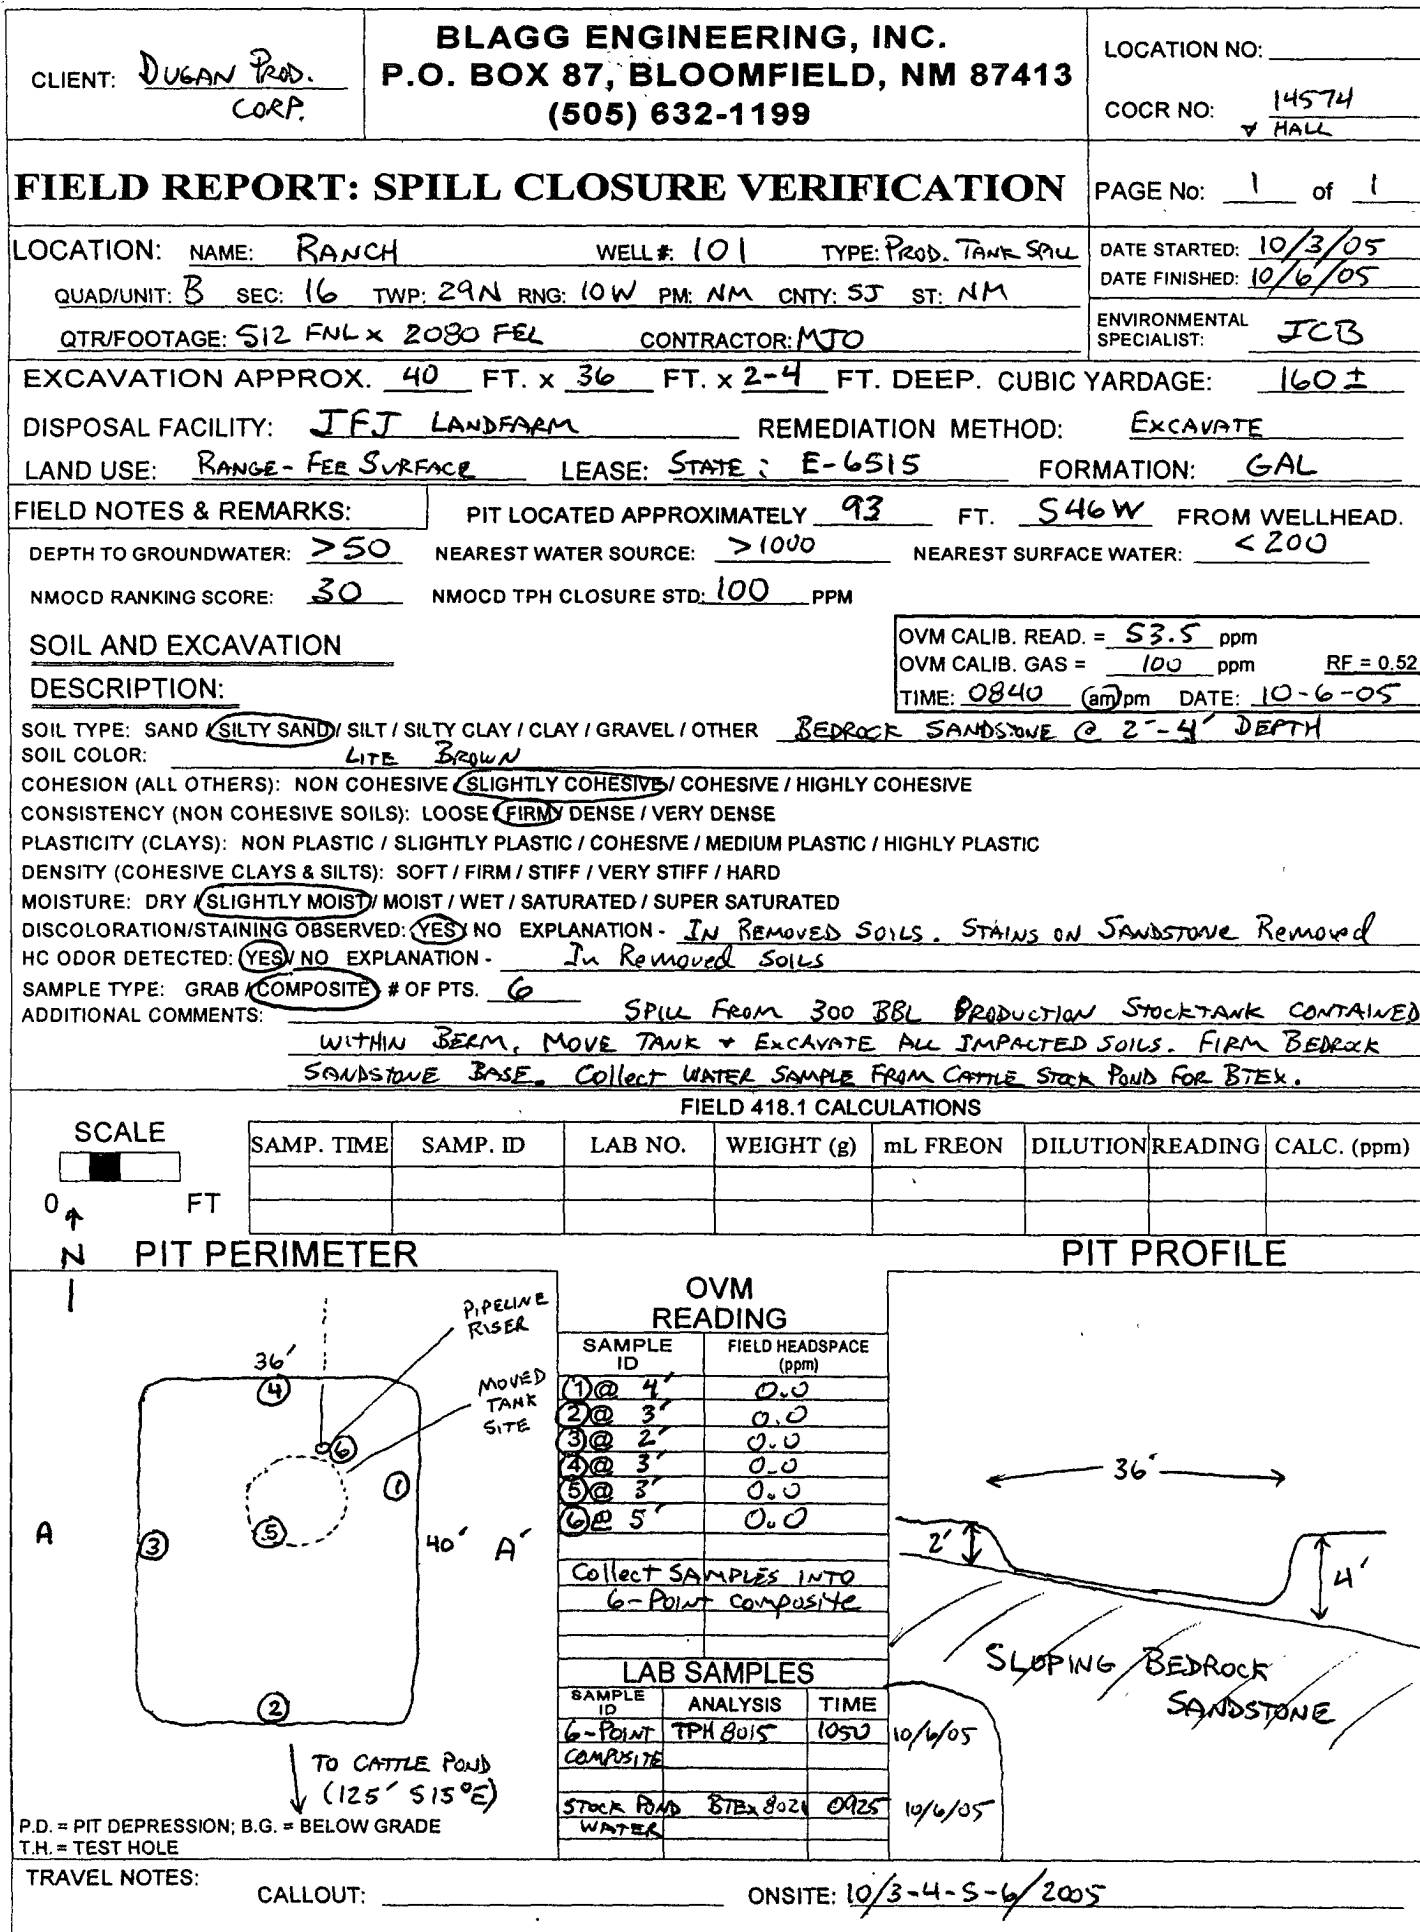 CLIENT: DUGAN PROD.
CORP.
BLAGG ENGINEERING, INC.
P.O. BOX 87, BLOOMFIELD, NM 87413
(505) 632-1199
LOCATION NO:
COCR NO: 14574
HALL
FIELD REPORT: SPILL CLOSURE VERIFICATION
PAGE No: 1 of 1
LOCATION: NAME: RANCH WELL #: 101 TYPE: PROD. TANK SPILL
QUAD/UNIT: B SEC: 16 TWP: 29N RNG: 10W PM: NM CNTY: SJ ST: NM
QTR/FOOTAGE: 512 FNL x 2080 FEL CONTRACTOR: MJO
DATE STARTED: 10/3/05
DATE FINISHED: 10/6/05
ENVIRONMENTAL
SPECIALIST: JCB
EXCAVATION APPROX. 40 FT. x 36 FT. x 2-4 FT. DEEP. CUBIC YARDAGE: 160 ±
DISPOSAL FACILITY: JFJ LANDFARM REMEDIATION METHOD: EXCAVATE
LAND USE: RANGE - FEE SURFACE LEASE: STATE: E-6515 FORMATION: GAL
FIELD NOTES & REMARKS: PIT LOCATED APPROXIMATELY 93 FT. S46W FROM WELLHEAD.
DEPTH TO GROUNDWATER: >50 NEAREST WATER SOURCE: >1000 NEAREST SURFACE WATER: <200
NMOCD RANKING SCORE: 30 NMOCD TPH CLOSURE STD: 100 PPM
SOIL AND EXCAVATION
DESCRIPTION:
OVM CALIB. READ. = 53.5 ppm
OVM CALIB. GAS = 100 ppm RF = 0.52
TIME: 0840 am/pm DATE: 10-6-05
SOIL TYPE: SAND / SILTY SAND / SILT / SILTY CLAY / CLAY / GRAVEL / OTHER BEDROCK SANDSTONE @ 2'-4' DEPTH
SOIL COLOR: LITE BROWN
COHESION (ALL OTHERS): NON COHESIVE / SLIGHTLY COHESIVE / COHESIVE / HIGHLY COHESIVE
CONSISTENCY (NON COHESIVE SOILS): LOOSE / FIRM / DENSE / VERY DENSE
PLASTICITY (CLAYS): NON PLASTIC / SLIGHTLY PLASTIC / COHESIVE / MEDIUM PLASTIC / HIGHLY PLASTIC
DENSITY (COHESIVE CLAYS & SILTS): SOFT / FIRM / STIFF / VERY STIFF / HARD
MOISTURE: DRY / SLIGHTLY MOIST / MOIST / WET / SATURATED / SUPER SATURATED
DISCOLORATION/STAINING OBSERVED: YES / NO EXPLANATION - IN REMOVED SOILS. STAINS ON SANDSTONE Removed
HC ODOR DETECTED: YES / NO EXPLANATION - In Removed SOILS
SAMPLE TYPE: GRAB / COMPOSITE # OF PTS. 6
ADDITIONAL COMMENTS: SPILL FROM 300 BBL PRODUCTION STOCKTANK CONTAINED
WITHIN BERM. MOVE TANK + EXCAVATE ALL IMPACTED SOILS. FIRM BEDROCK
SANDSTONE BASE. Collect WATER SAMPLE FROM CATTLE STOCK POND FOR BTEX.
FIELD 418.1 CALCULATIONS
SCALE
0 FT
SAMP. TIME SAMP. ID LAB NO. WEIGHT (g) mL FREON DILUTION READING CALC. (ppm)
N
PIT PERIMETER
PIT PROFILE
PIPELINE
RISER
36'
MOVED
TANK
SITE
4
6
1
5
3
2
A
40'
A'
TO CATTLE POND
(125' S15°E)
P.D. = PIT DEPRESSION; B.G. = BELOW GRADE
T.H. = TEST HOLE
OVM
READING
SAMPLE ID FIELD HEADSPACE (ppm)
1 @ 4' 0.0
2 @ 3' 0.0
3 @ 2' 0.0
4 @ 3' 0.0
5 @ 3' 0.0
6 @ 5' 0.0
Collect SAMPLES INTO
6-POINT composite
LAB SAMPLES
SAMPLE ID ANALYSIS TIME
6-POINT TPH 8015 1050 10/6/05
COMPOSITE
STOCK POND BTEX 8021 0925 10/6/05
WATER
36'
2'
4'
SLOPING BEDROCK
SANDSTONE
TRAVEL NOTES:
CALLOUT: ONSITE: 10/3-4-5-6/2005